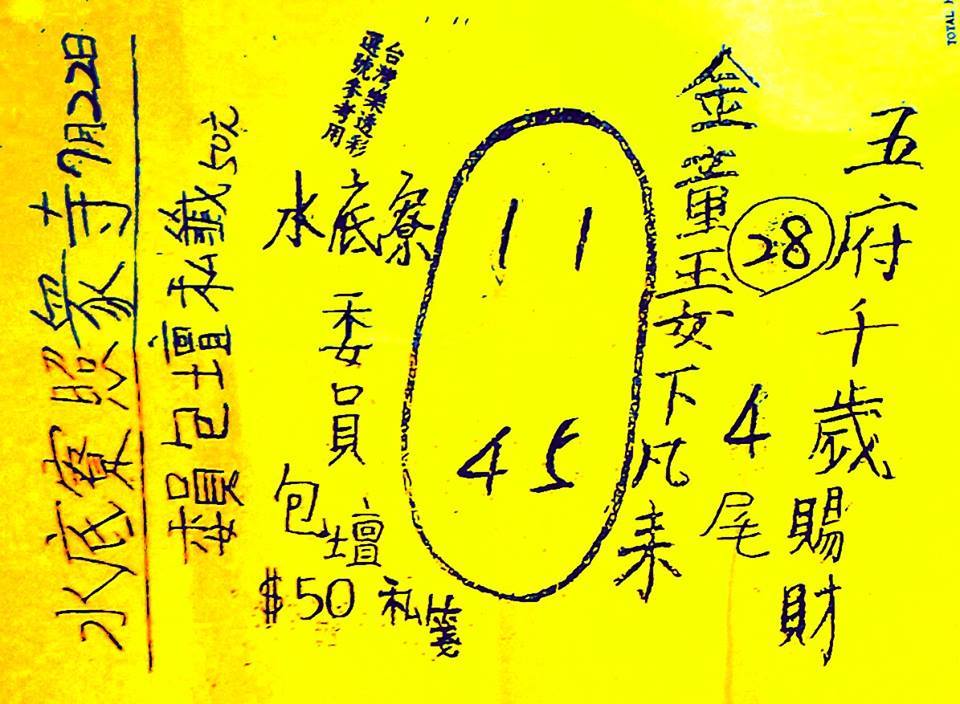 TOTAL
五府千歲賜財
28
4尾
金童玉女下凡来
11
45
台灣樂透彩
選號參考用
水底寮
委員
包壇
$50 私箋
委員包壇私籤50元
水底寮照眾寺7月22日